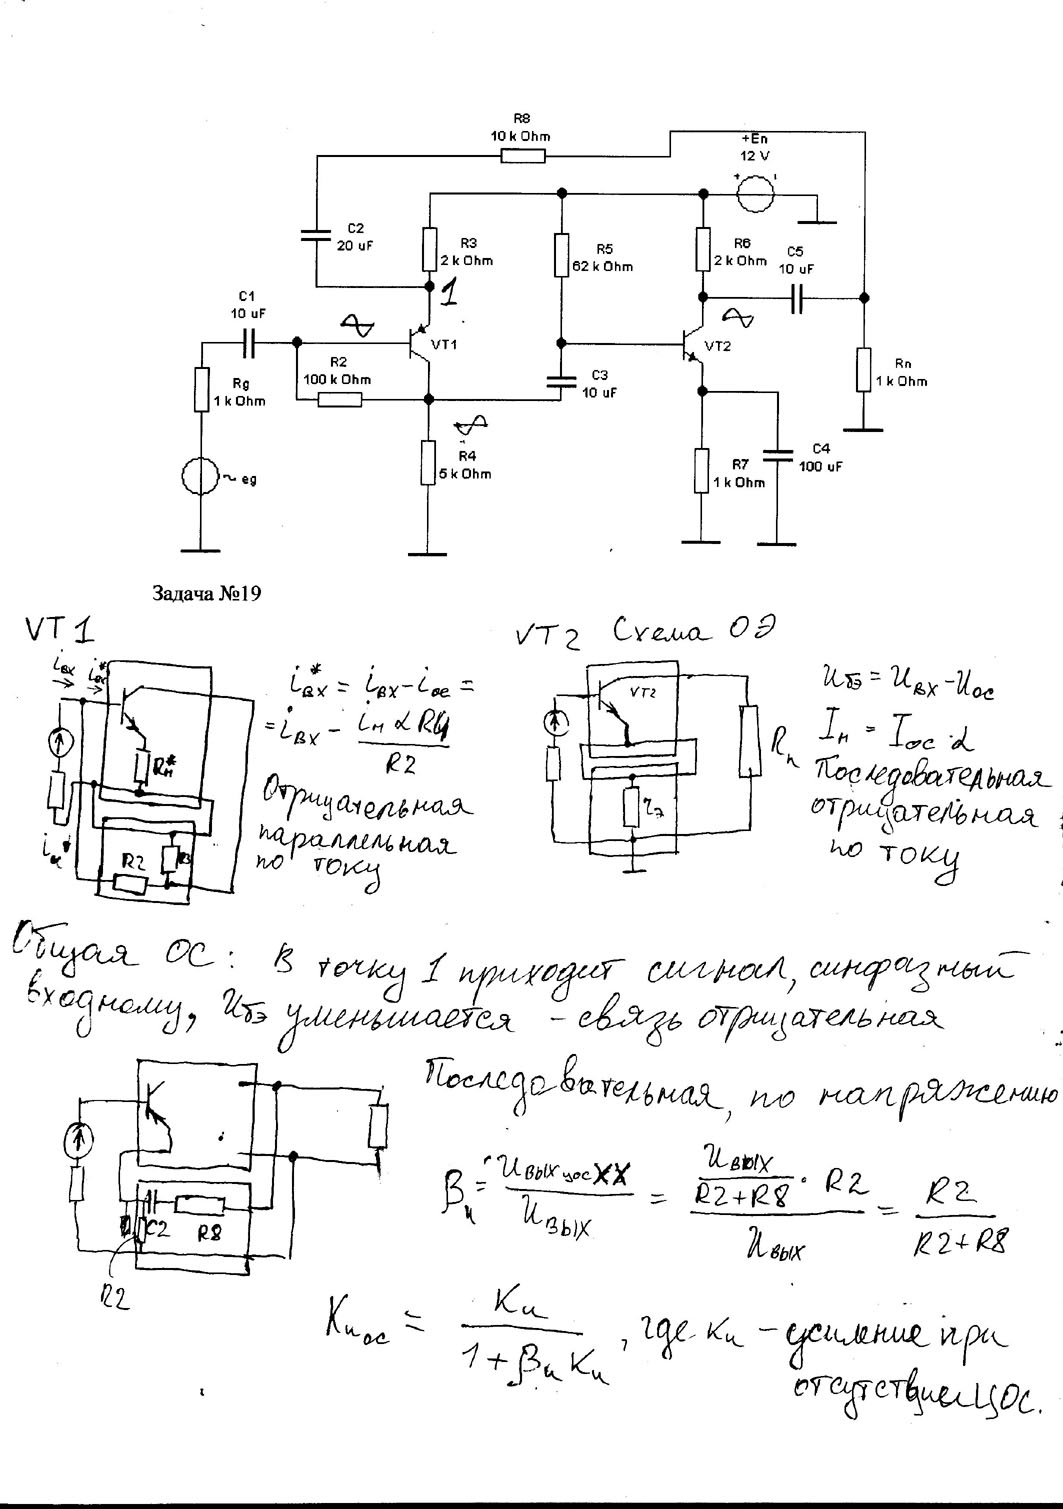 R8
10 k Ohm
+En
12 V
+
-
C2
20 uF
R3
2 k Ohm
R5
62 k Ohm
R6
2 k Ohm
C5
10 uF
1
C1
10 uF
VT1
VT2
R2
100 k Ohm
C3
10 uF
Rg
1 k Ohm
Rn
1 k Ohm
R4
5 k Ohm
~ eg
R7
1 k Ohm
C4
100 uF
Задача №19
VT1
iвх iвх*
Rн*
iос
R2
iвх* = iвх - iос =
= iвх - iн α R4 / R2
Отрицательная
параллельная
по току
VT2 Схема ОЭ
VT2
Rn
rэ
Uбэ = Uвх - Uос
Iн = Iос α
Последовательная
отрицательная
по току
Общая ОС: В точку 1 приходит сигнал, синфазный
входному, Uбэ уменьшается - связь отрицательная
C2 R8
R2
Последовательная, по напряжению
βu = Uвых цос XX / Uвых = (Uвых / (R2+R8) · R2) / Uвых = R2 / (R2+R8)
Kuос = Ku / (1 + βu Ku), где Ku - усиление при
отсутствии ЦОС.